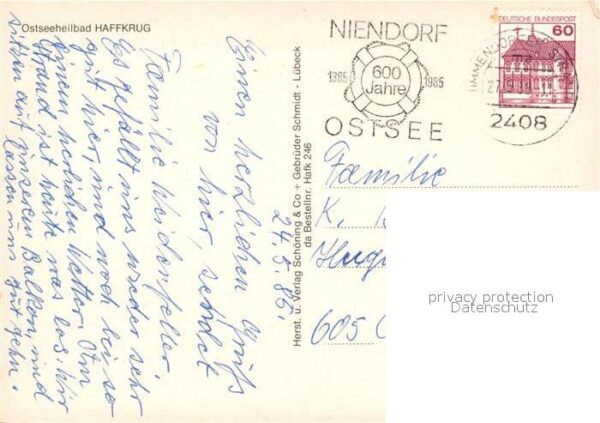 Ostseeheilbad HAFFKRUG
Einen herzlichen Gruß
von hier, sendet
Familie Weidenfeller.
Es gefällt uns wieder sehr
gut hier, und noch bei so
einem herrlichen Wetter. Am
Strand ist heute was los. Wir
sitzen auf unserem Balkon, und
lassen uns gut gehn.
24.5.85.
Herst. u. Verlag Schöning & Co + Gebrüder Schmidt - Lübeck
da Bestellnr. Hafk 246
NIENDORF
1385 600 Jahre 1985
OSTSEE
DEUTSCHE BUNDESPOST
60
2408
Familie
K.
605
privacy protection
Datenschutz